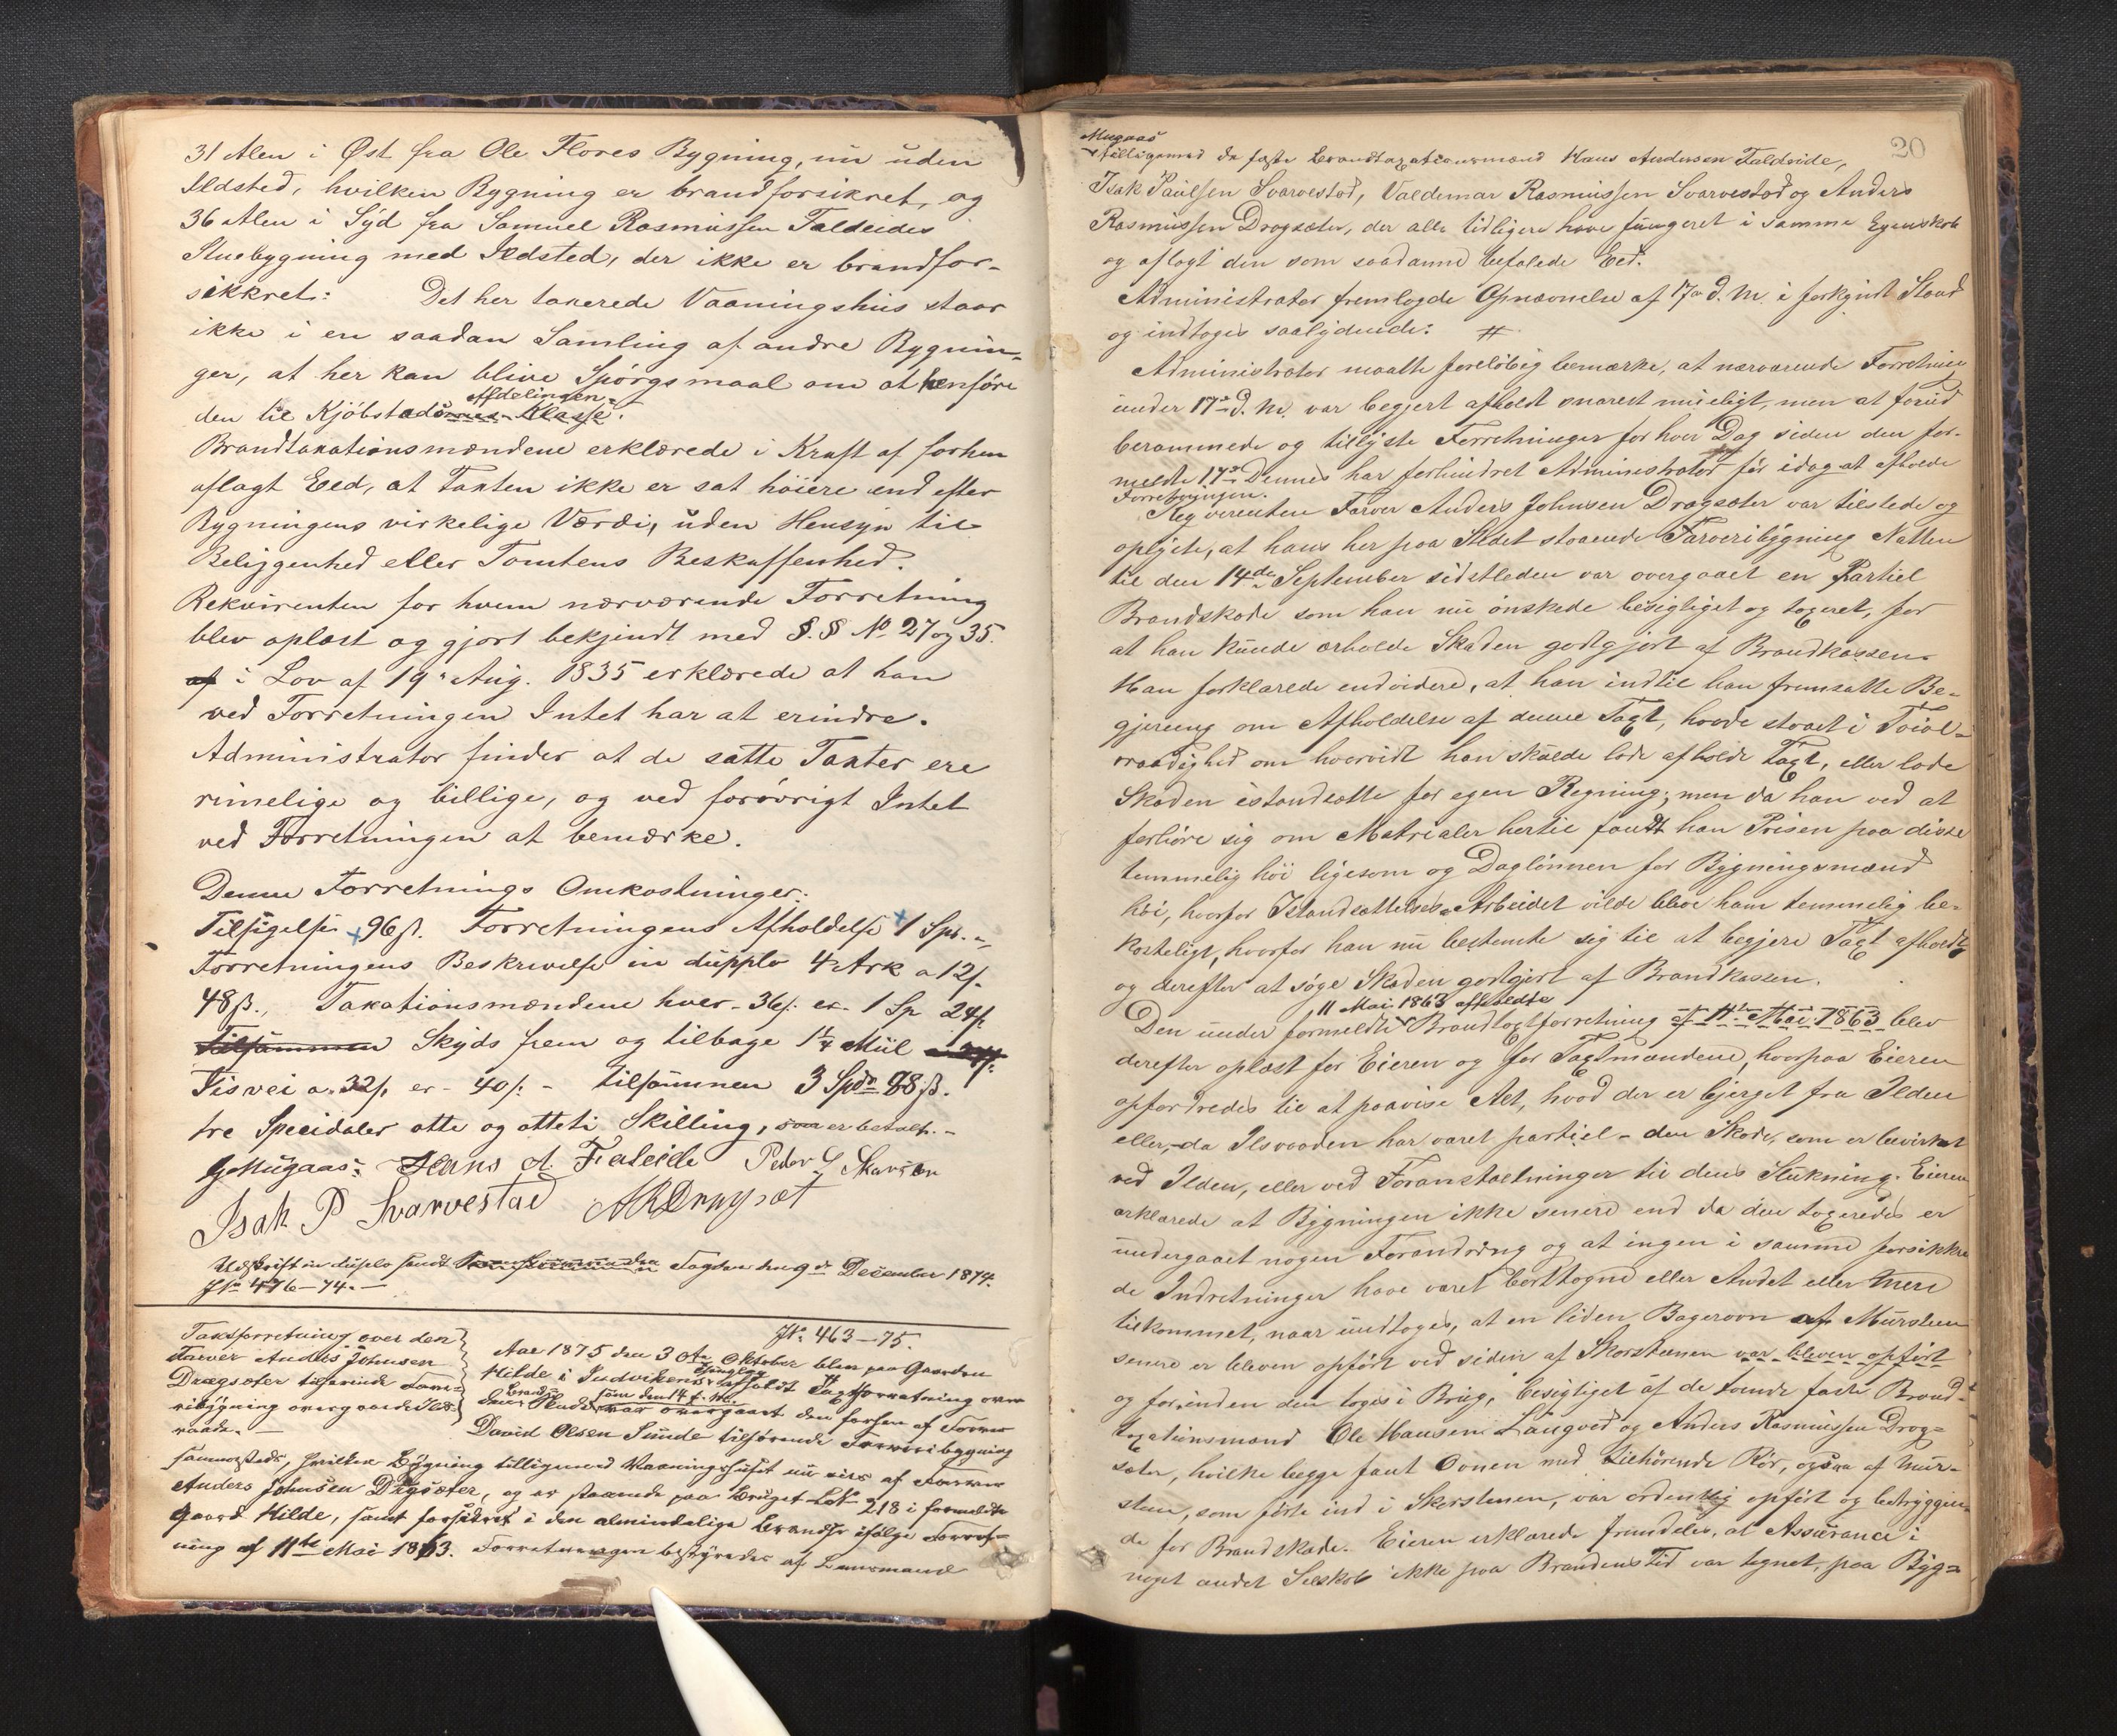 31 Alen i Øst fra Ole Flores Bygning, nu uden
Ildsted, hvilken Bygning er brandforsikret, og
36 Alen i Syd fra Samuel Rasmussen Faldeides
Stuebygning med Ildsted, der ikke er brandfor-
sikkret: Det her taxerede Vaaningshus staar
ikke i en saadan Samling af andre Bygnin-
ger, at her kan blive Spörgsmaal om at henføre
Affdelingen
den til Kjöbstadernes Klasse.
Brandtaxationsmændene erklærede i Kraft af forhen
aflagt Eed, at Taxten ikke er sat höiere end efter
Bygningens virkelige Værdi, uden Hensyn til
Beliggenhed eller Tomtens Beskaffenhed.
Rekvirenten for hvem nærværende Forretning
blev oplæst og gjort bekjendt med §.§ No 27 og 35.
af i Lov af 19 Aug. 1835 erklærede at han
ved Forretningen Intet har at erindre.
Administrator finder at de satte Taxter ere
rimelige og billige, og ved forövrigt Intet
ved Forretningen at bemærke.
Denne Forretnings Omkostninger:
Tilsigelse 96 ß. Forretningens Afholdelse 1 Spd.
Forretningens Beskrivelse in dupplo 4 Ark a 12 ß.
48 ß., Taxationsmændene hver 36 ß. er 1 Sp 24 ß.
Tilsammen Skyds frem og tilbage 1 1/4 Miil
Tisvei a 32 ß. er 40 ß. - tilsammen 3 Spd 88 ß.
tre Speeidaler otte og otteti Skilling, som er betalt. -
GMugaas: Hans A. Faleide Peder
Isak P Svarvestad ARDragsæt
Udskrift in duplo sendt Fogden den 9de December 1874.
J No 476-74. -
J No. 463-75.
Taxtforretning over den
Farver Anders Johnsen
Dragsæter tilhørende Farve-
ribygning overgaaede Ilds-
vaade. -
Aar 1875 den 30te Oktober blev paa Gaarden
Hilde i Indvikens Thinglag afholdt Taxtforretning over
Brand-
den Skade som den 14 f. M. var overgaaet den forhen af Farver
David Olsen Sunde tilhørende Farveribygning
sammesteds, hvilken Bygning tilligemed Vaaningshuset nu eies af Farver
Anders Johnsen Dragsæter, og er staaende paa Bruget LNo 218 i formeldte
Gaard Hilde, samt forsikret i den almindelige Brandkr ifølge Forret-
ning af 11te Mai 1863. Forretningen bestyredes af Lensmand
20
Mugaas
tilligemed de faste Brandtaxationsmænd Hans Andersen Faldeide,
Isak Paulsen Svarvestad, Valdemar Rasmussen Svarvestad og Anders
Rasmussen Dragsæter, der alle tidligere have fungeret i samme Egenskab
og aflagt den som saadanne befalede Eed.
Administrator fremlagde Opnævnelse af 17de d. M. i forkyndt Stand
og indtoges saalydende: #
Administrator maatte foreløbig bemærke, at nærværende Forretning
under 17de d. M. var begjert afholdt snarest mueligt, men at forud
berammede og tillyste Forretninger for hver Dag siden den for-
meldte 17de Dennes har forhindret Administrator før idag at afholde
Forretningen.
Rekvirenten Farver Anders Johnsen Dragsæter var tilstede og
oplyste, at hans her paa Stedet staaende Farveribygning Natten
til den 14de September sidstleden var overgaaet en Partiel
Brandskade som han nu önskede besigtiget og taxeret, for
at han kunde erholde Skaden godtgjort af Brandkassen.
Han forklarede endvidere, at han indtil han fremsatte Be-
gjering om Afholdelse af denne Taxt, havde staaet i Tvivl-
raadighed om hvorvidt han skulde lade afholde Taxt, eller lade
Skaden istandsætte for egen Regning; men da han ved at
forhöre sig om Matrialer hertil fandt han Prisen paa disse
temmelig höi ligesom og Daglönnen for Bygningsmænd
höi, hvorfor Istandsættelses-Arbeidet vilde blive ham temmelig be-
kosteligt, hvorfor han nu bestemte sig til at begjere Taxt afholdt,
og derefter at söge Skaden godtgjort af Brandkassen.
11 Mai 1863 afholdte
Den under formeldte Brandtaxtforretning af 11te Mai 1863 blev
derefter oplæst for Eieren og for Taxtmændene, hvorpaa Eieren
opfordredes til at paavise Alt, hvad der er bjerget fra Ilden
eller, da Ilsvaaden har været partiel - den Skade, som er bevirket
ved Ilden, eller ved Foranstaltninger til dens Slukning. Eieren
erklærede at Bygningen ikke senere end da den taxeredes er
undergaaet nogen Forandring og at ingen i samme forsikre-
de Indretninger have været borttagne eller Andet eller Mere
tilkommet, naar undtages, at en liden Bagerovn af Mursteen
senere er bleven opfört ved siden af Skorstenen var bleven opfört
og forinden den toges i Brug, besigtiget af de tvende faste Brand-
taxationsmænd Ole Hansen Langved og Anders Rasmussen Drag-
sæter, hvilke begge fant Ovnen med tilhörende Rör, ogsaa af Mur-
sten, som förte ind i Skorstenen, var ordentlig opfört og betryggen-
de for Brandskade. Eieren erklærede fremdeles, at Assurance i
noget andet Selskab ikke paa Brandens Tid var tegnet, paa Byg-